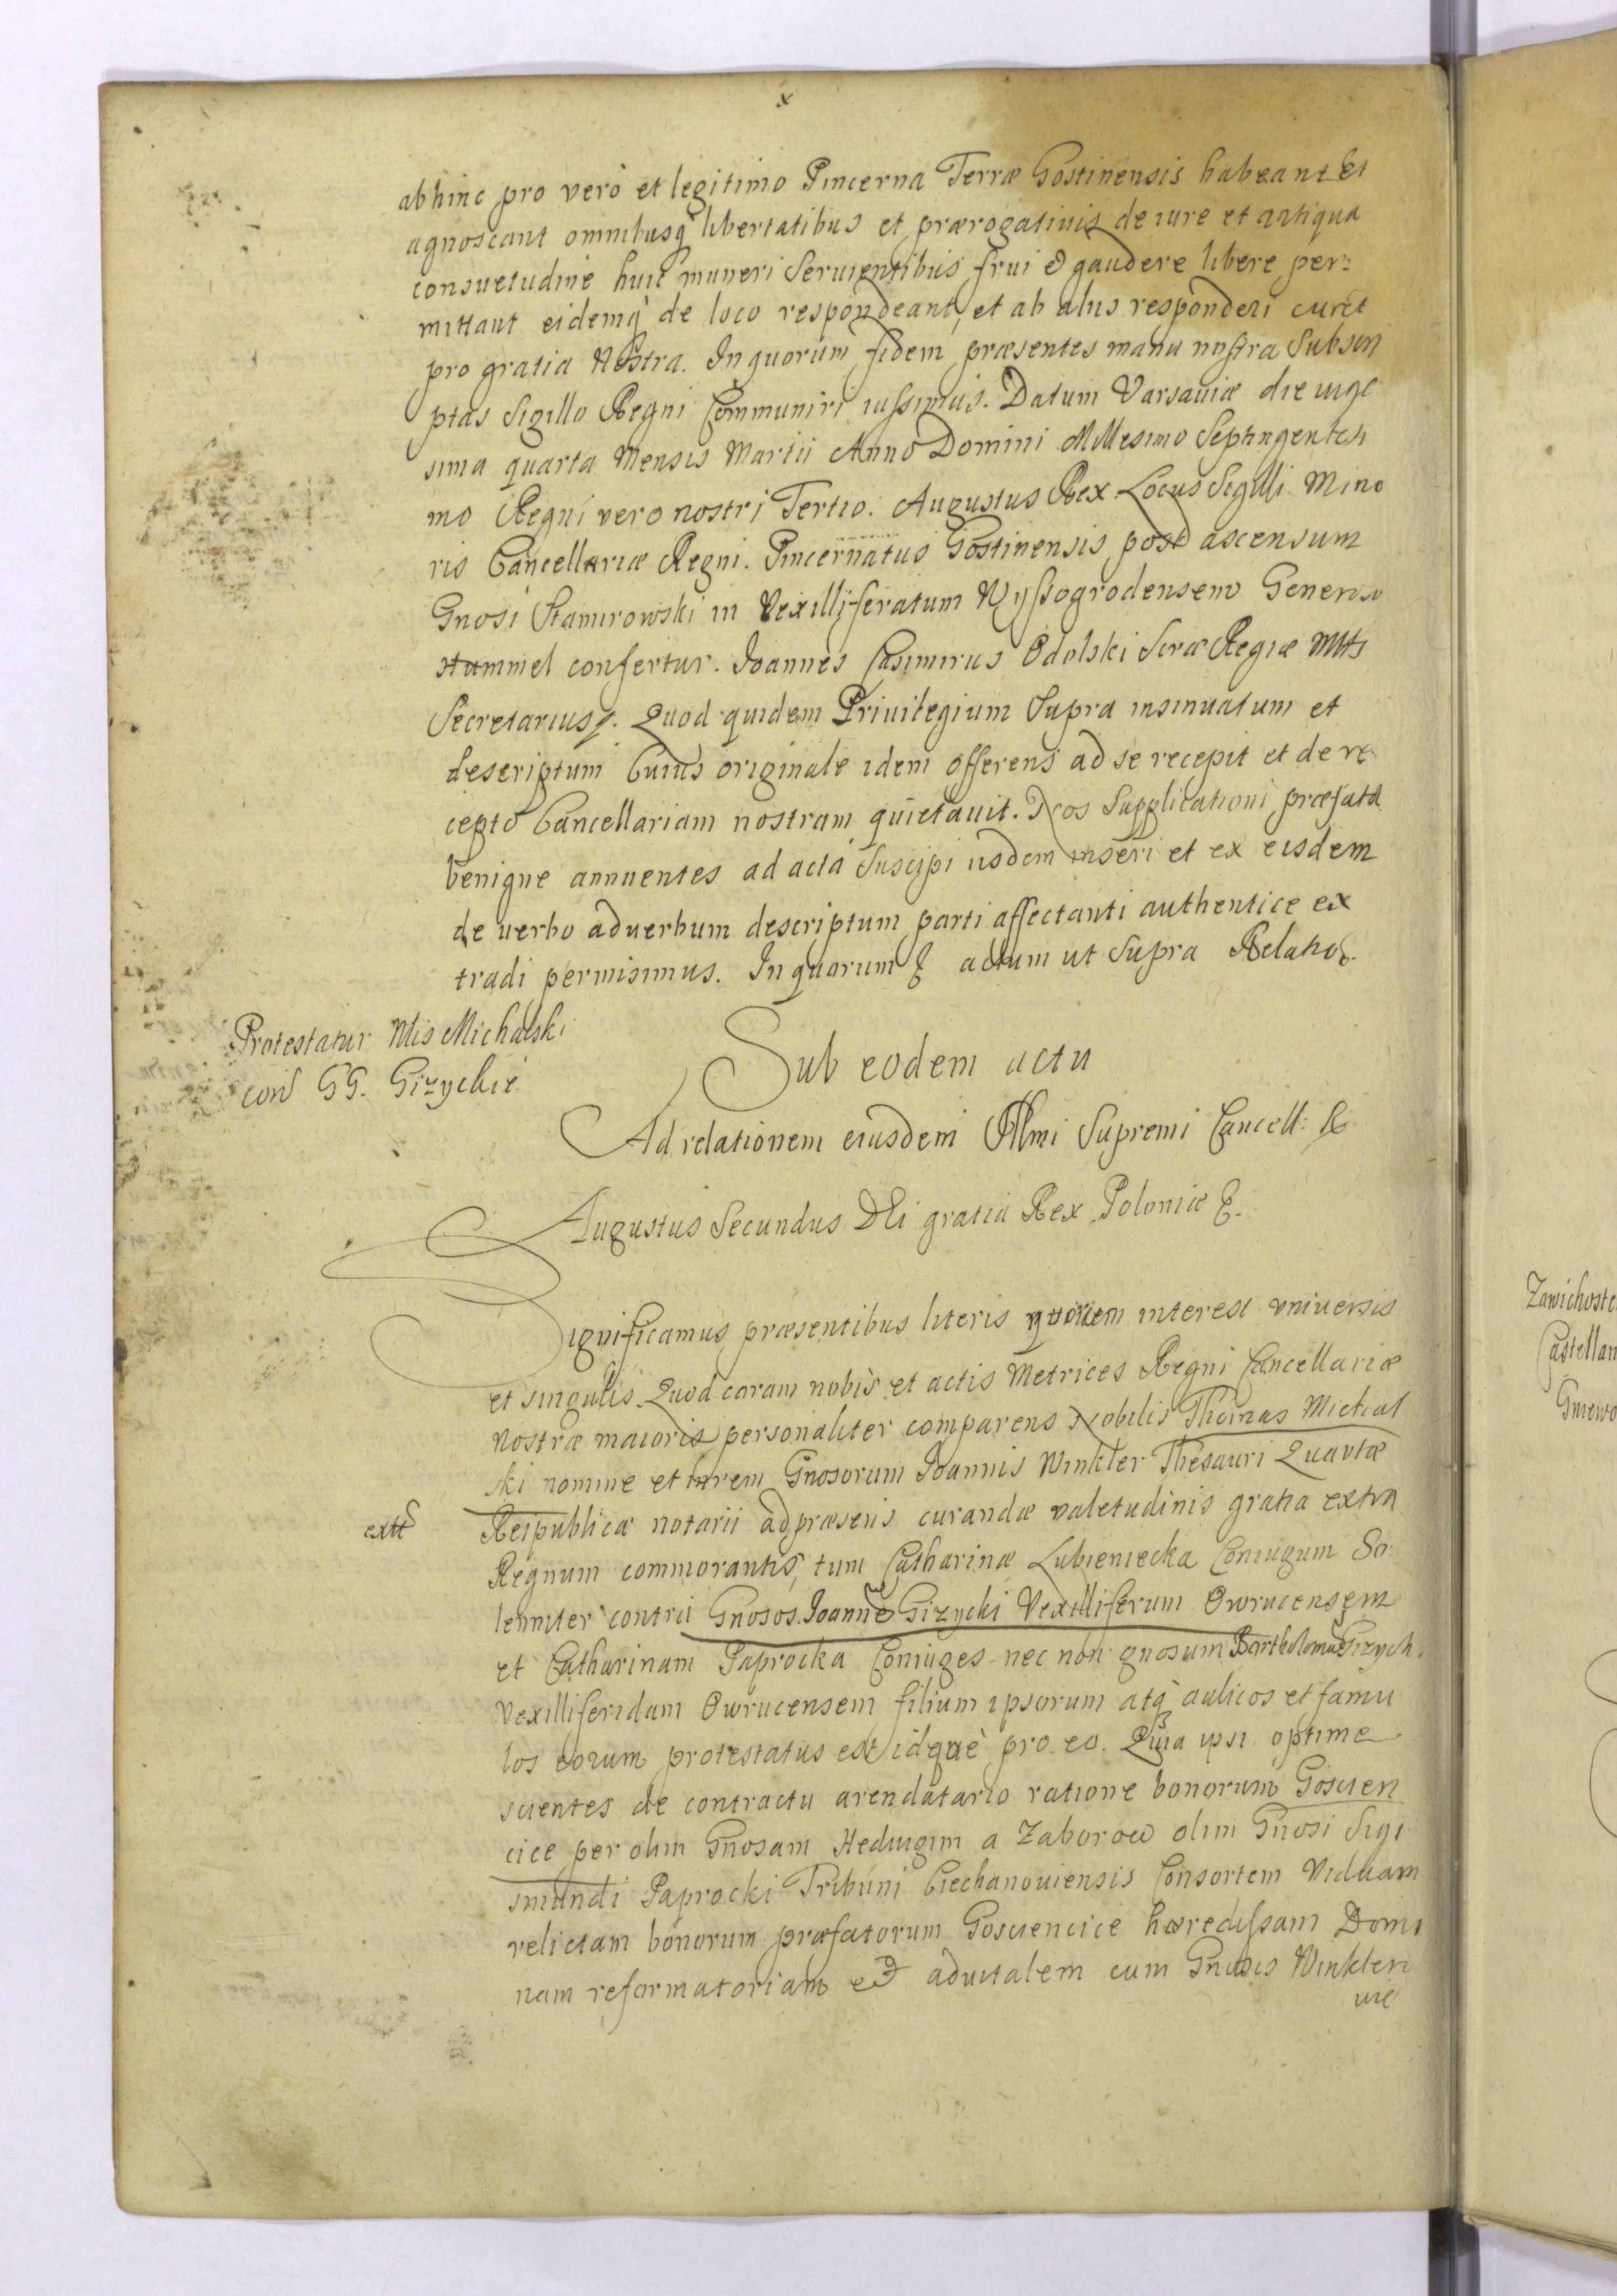 x
abhinc pro vero et legitimo Pincerna Terræ Gostinensis habeant et
agnoscant omnibusq libertatibus et prærogativis de iure et antiqua
consuetudine huic muneri servientibus frui & gaudere libere per:
mittant eidemq de loco respondeant, et ab alys responderi curet
pro gratia Nostra. In quorum fidem præsentes manu nostra Subscri
ptas Sigillo Regni Communiri iussimus. Datum Varsaviæ die vige
sima quarta Mensis Martii Anno Domini Millesimo Septingentesi
mo Regni vero nostri Tertio. Augustus Rex. Locus Sigilli Mino
ris Cancellariæ Regni. Pincernatus Gostinensis post ascensum
Gnosi Stamirowski in Vexilliferatum Wyssogrodensem Generoso
Hummel confertur. Joannes Casimirus Odolski Scræ Regiæ Mtts
Secretarius. Quod quidem Privilegium Supra insinuatum et
descriptum Cuius originale idem offerens ad se recepit et de re
cepto Cancellariam nostram quietavit. Nos Supplicationi præfatæ
benigne annuentes ad acta Suscipi iisdem inseri et ex eisdem
de verbo ad verbum descriptum parti affectanti authentice ex
tradi permisimus. In quarum & actum ut Supra Relatio &.
Protestatur Nlis Michalski
con GG. Gizyckie
Sub eodem actu
Ad relationem eiusdem Illmi Supremi Cancell: &
Augustus Secundus DEi gratia Rex Poloniæ &.
Significamus præsentibus literis quorum interest universis
et singulis. Quod coram nobis et actis Metrices Regni Cancellariæ
Nostræ maioris personaliter comparens Nobilis Thomas Michal
ski nomine et Gnosorum Joannis Winkler Thesauri Quartæ
extt
Reipublicæ notarii ad præsens curandæ valetudinis gratia extra
Regnum commorantis, tum Catharinæ Lubieniecka Coniugum So
lenniter contra Gnosos Joanne Gizycki Vexilliferum Owrucensem
et Catharinam Paprocka Coniuges nec non gnosum Bartholomæ Gizycki
Vexilliferidam Owrucensem filium ipsorum atq aulicos et famu
los eorum protestatus est idque pro eo. Quia ipsi optime
scientes de contractu arendatario ratione bonorum Goscien
cice per olim Gnosam Hedvigim a Zaborow olim Gnosi Sigi
smundi Paprocki Tribuni Ciechanoviensis Consortem Viduam
relictam bonorum præfatorum Gosciencice hæredissam Domi
nam reformatoriam et advitalem cum Gnosis Winkleri
Zawichoste
Castellan
Gniewo